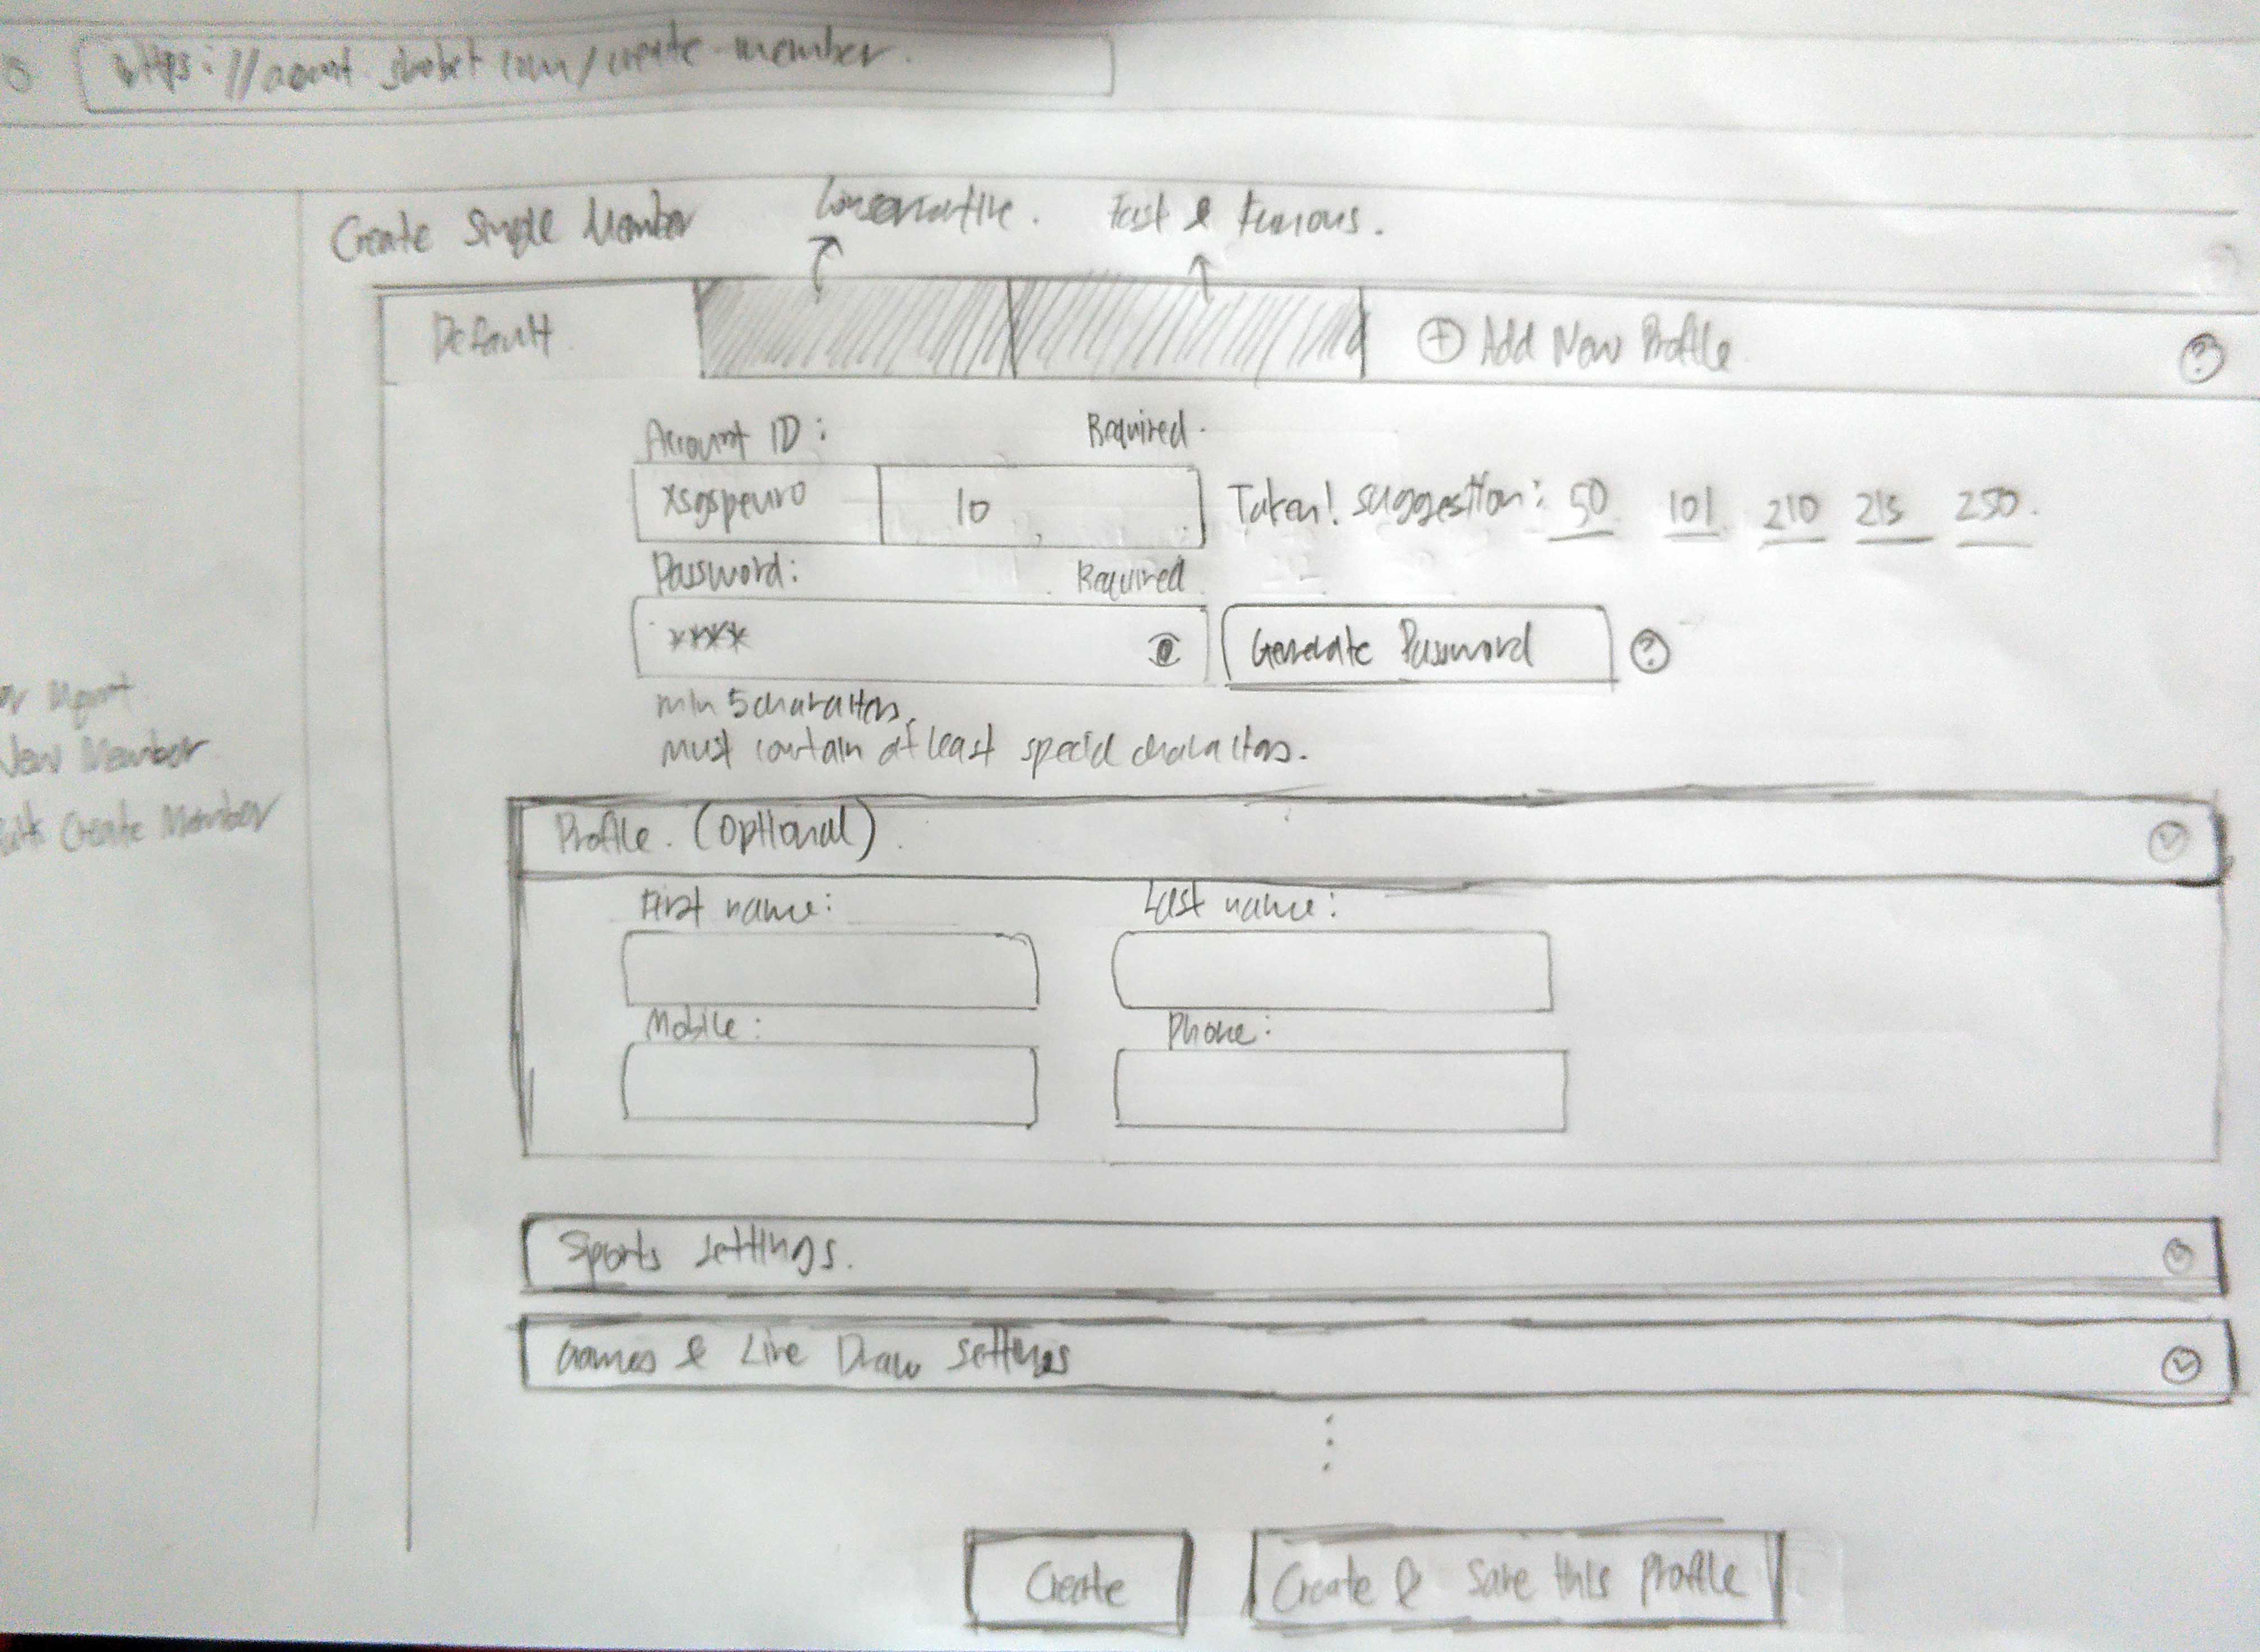 https://agent.sbobet.com/create-member.
Create Single Member
Conservative.
Fast & Furious.
Default
+ Add New Profile
?
Account ID:
Required.
xsgspeuro
10
Taken! suggestion: 50 101 210 215 250.
Password:
Required
****
Generate Password
?
min 5 characters,
must contain at least special characters.
Mgmt
New Member
Create Member
Profile. (optional).
First name:
Last name:
Mobile:
Phone:
Sports settings.
Games & Live Draw settings
Create
Create & Save this profile